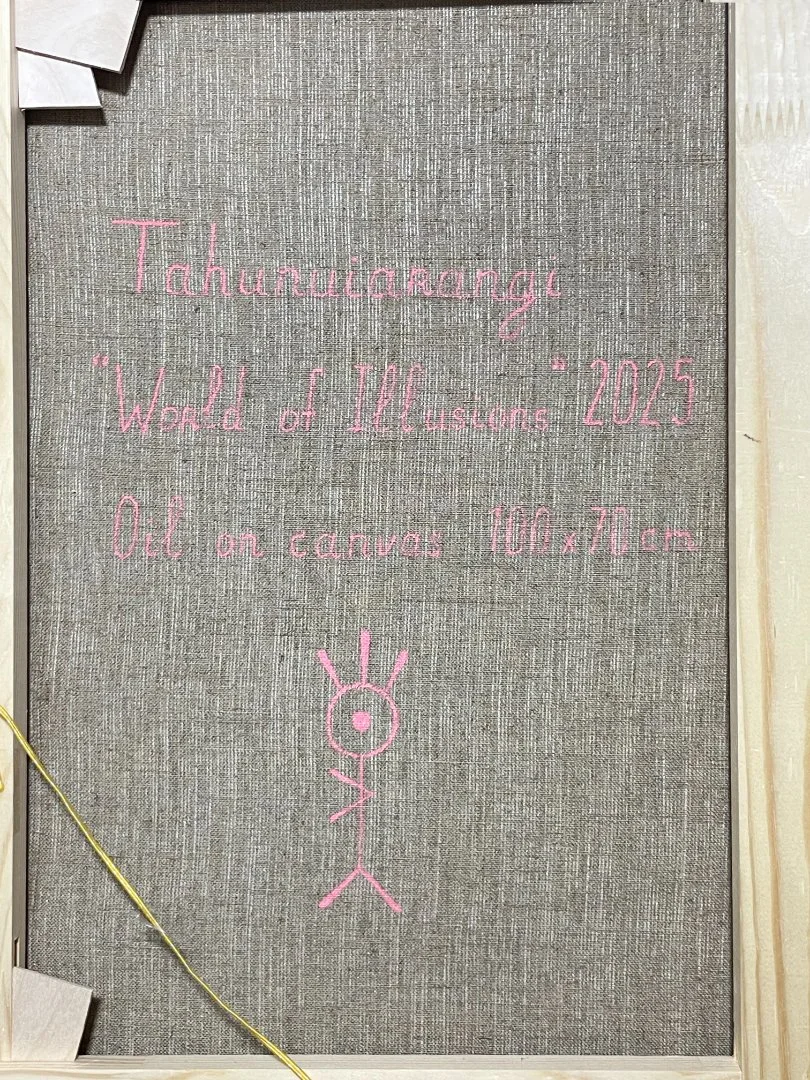 Tahunuiarangi
"World of Illusions" 2025
Oil on canvas 100 x 70 cm